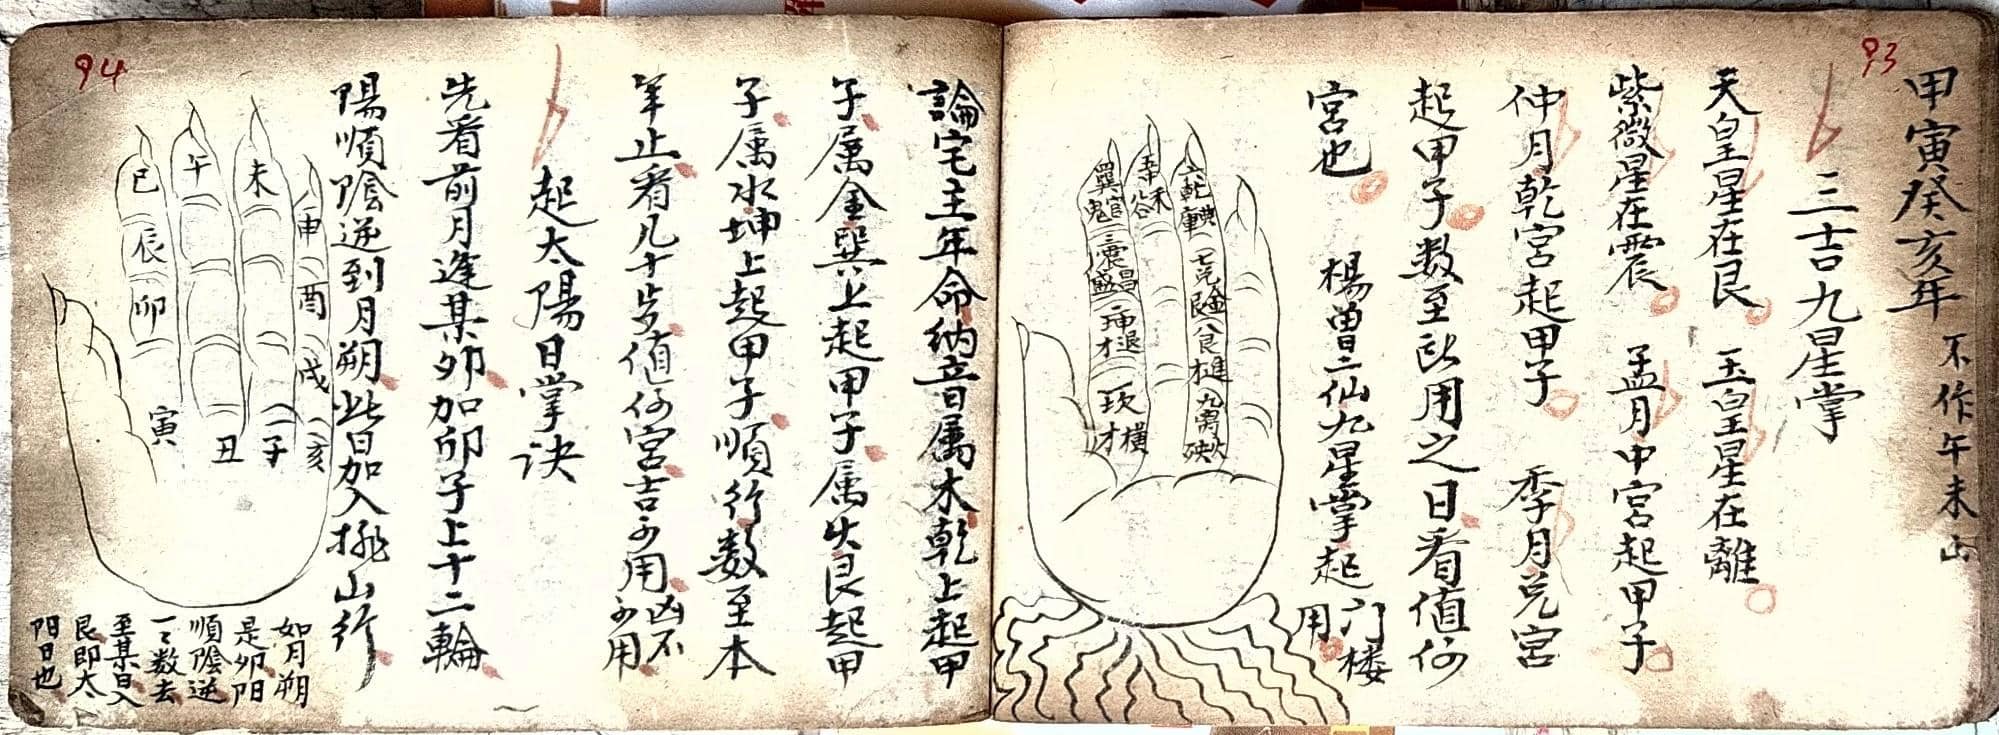 93
甲寅癸亥年 不作午未山
三吉九星掌
天皇星在艮 玉皇星在離
紫微星在震 孟月中宮起甲子
仲月乾宮起甲子 季月兑宮
起甲子数至所用之日看值何
宮也 楊曽二仙九星掌起門楼用
六乾
七兑
八艮
九离
巽官鬼
三震昌盛
二坤退才
坎横才
94
論宅主年命納音属木乾上起甲
子属金巽上起甲子属火艮起甲
子属水坤上起甲子順行数至本
年止看几十步值何宮吉可用凶不可用
起太陽日掌决
先看前月逢某卯加卯子上十二輪
陽順隂逆到月朔此日加入挑山行
巳
午
未
申
辰
酉
卯
戌
寅
丑
子
亥
如月朔
是卯阳
順隂逆
一々数去
至某日入
艮即太
阳日也